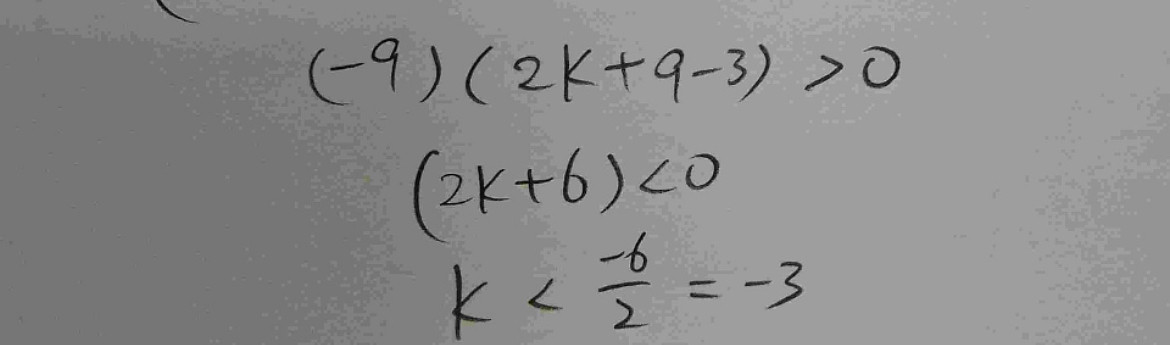 (-9)(2k+9-3) >0
(2k+6)<0
k < \frac{-6}{2} = -3